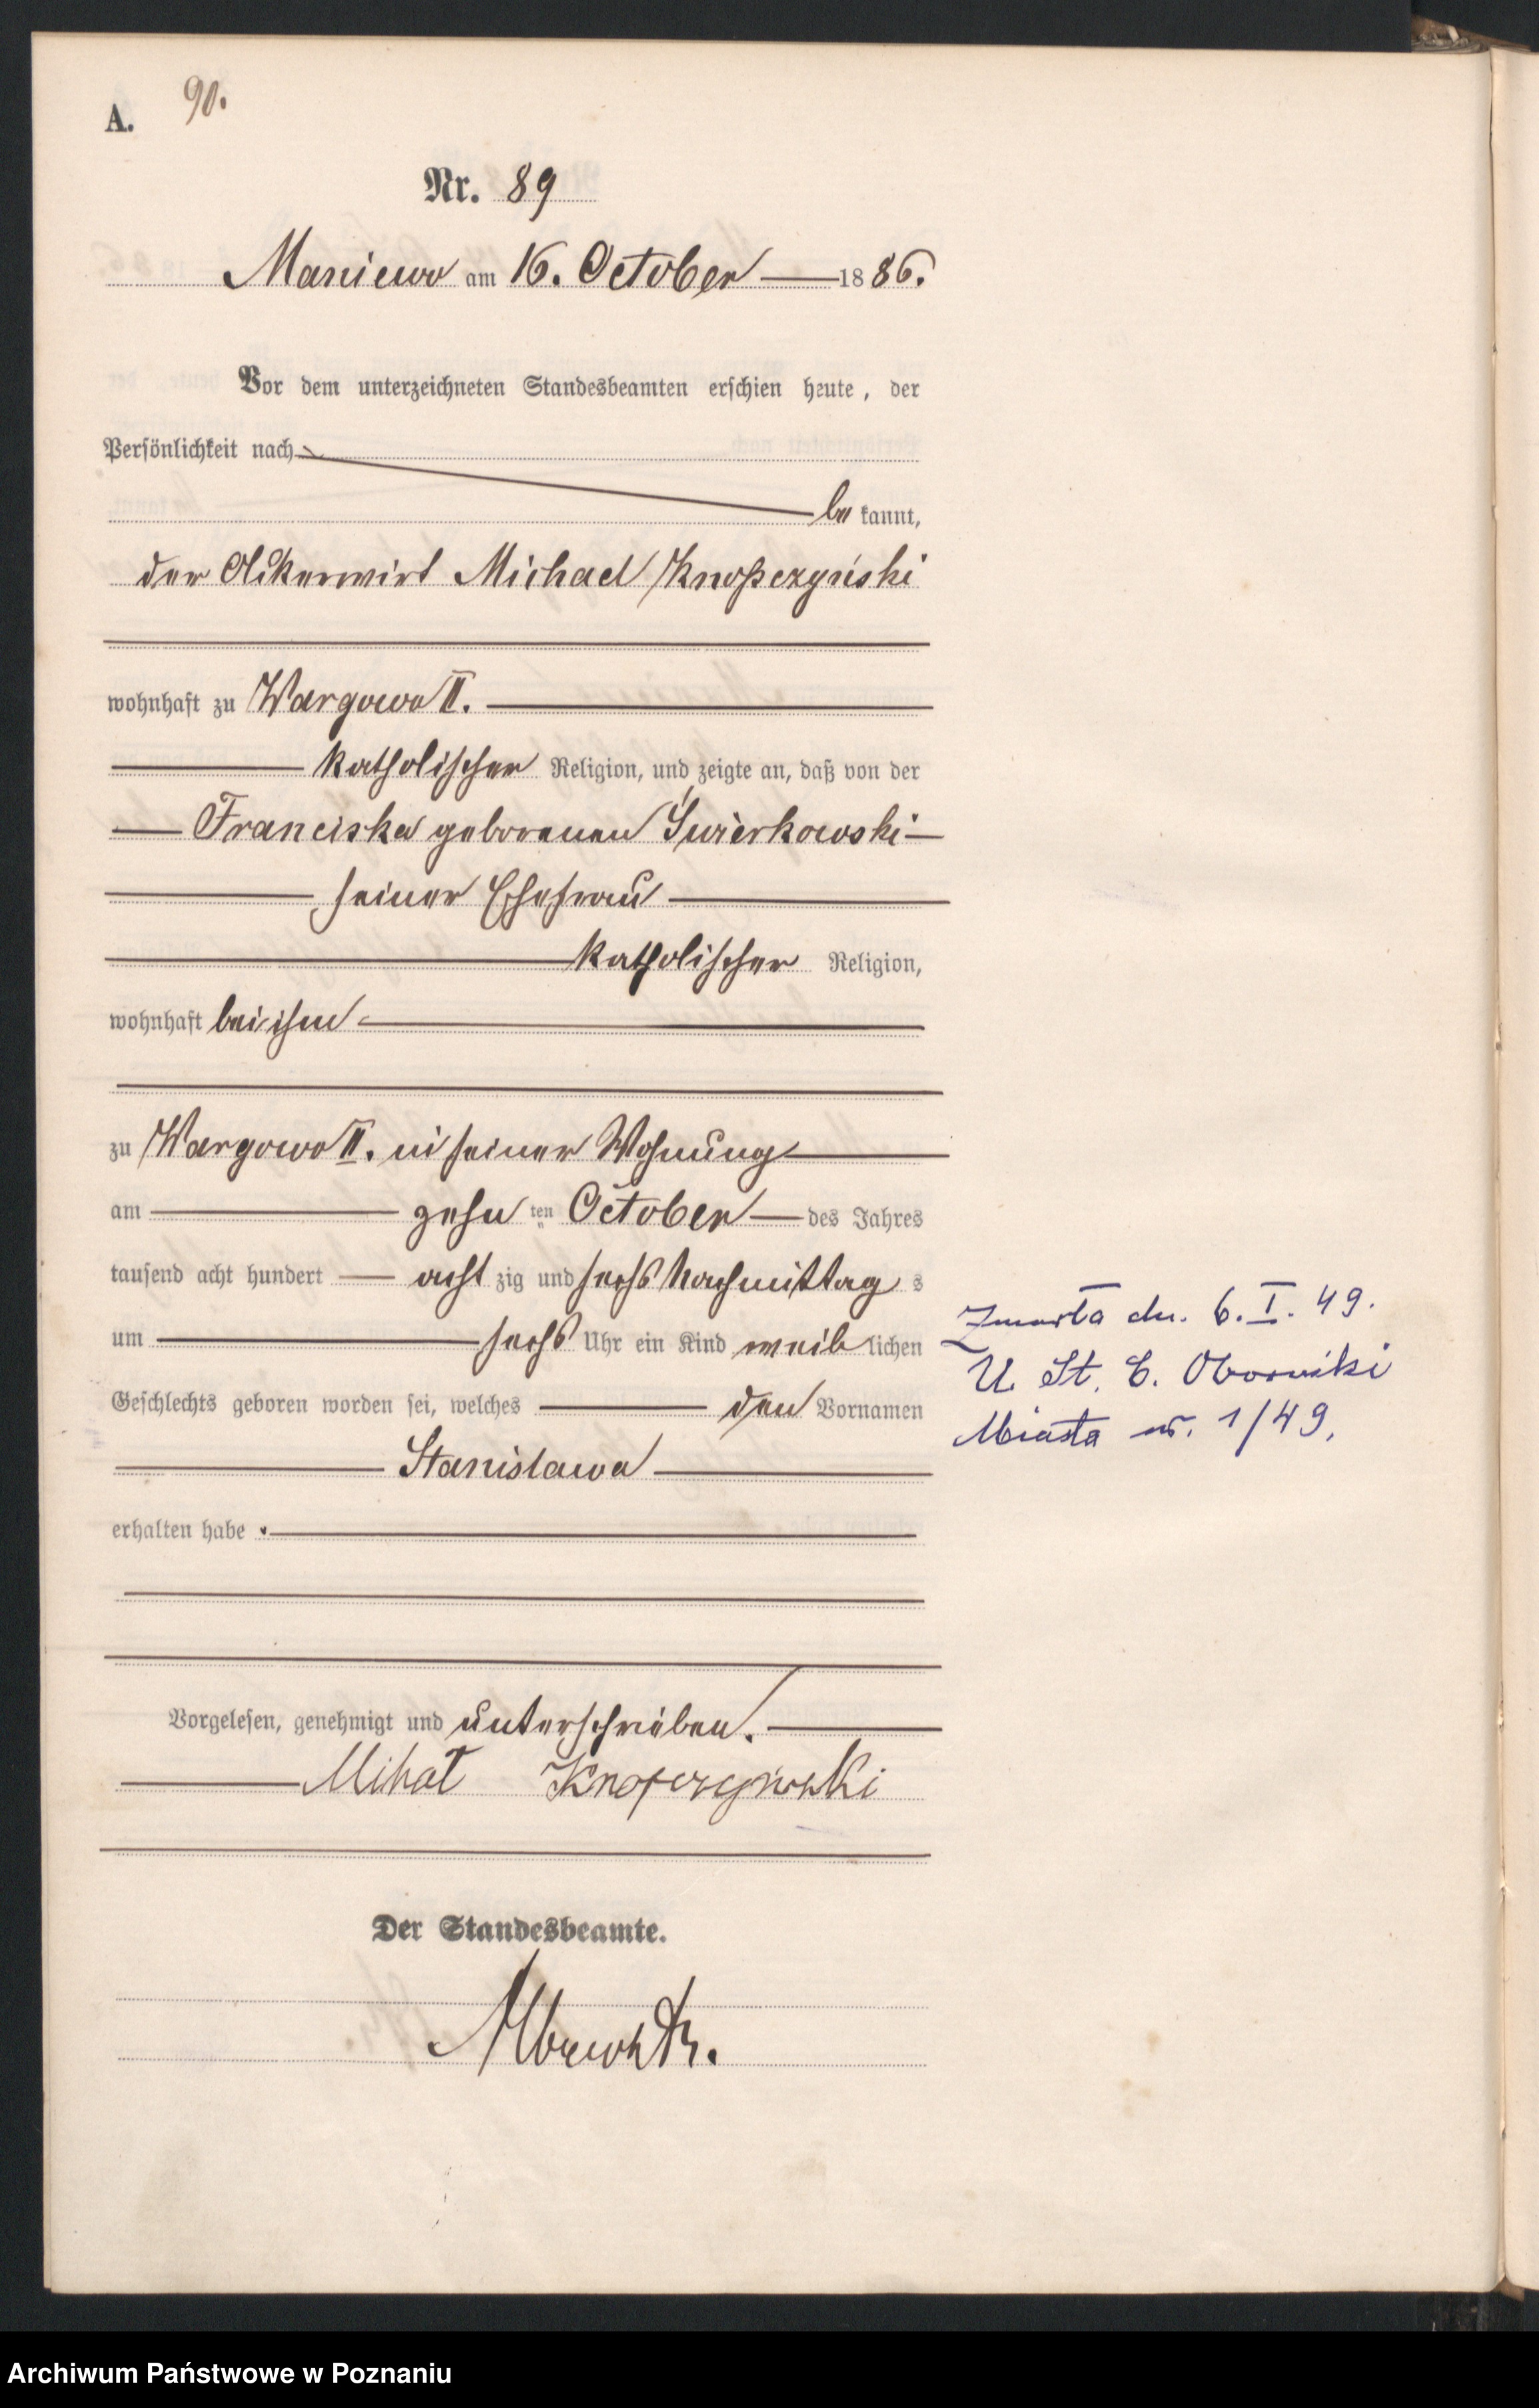 A. 90.
Nr. 89
Maniewo am 16. October 1886.
Vor dem unterzeichneten Standesbeamten erschien heute, der
Persönlichkeit nach
be kannt,
der Ackerwirt Michael Knopczyński
wohnhaft zu Wargowo II.
katholischer Religion, und zeigte an, daß von der
Franciska geborenen Świerkowski
seiner Ehefrau
katholischer Religion,
wohnhaft bei ihm
zu Wargowo II. in seiner Wohnung
am zehn ten October des Jahres
tausend acht hundert acht zig und sechs Nachmittag s
um sechs Uhr ein Kind weib lichen
Geschlechts geboren worden sei, welches den Vornamen
Stanislawa
erhalten habe.
Zmarła dn. 6. I. 49.
U. St. C. Oborniki
Miasta nr. 1/49.
Vorgelesen, genehmigt und unterschrieben.
Mihał Knopczyński
Der Standesbeamte.
Archiwum Państwowe w Poznaniu